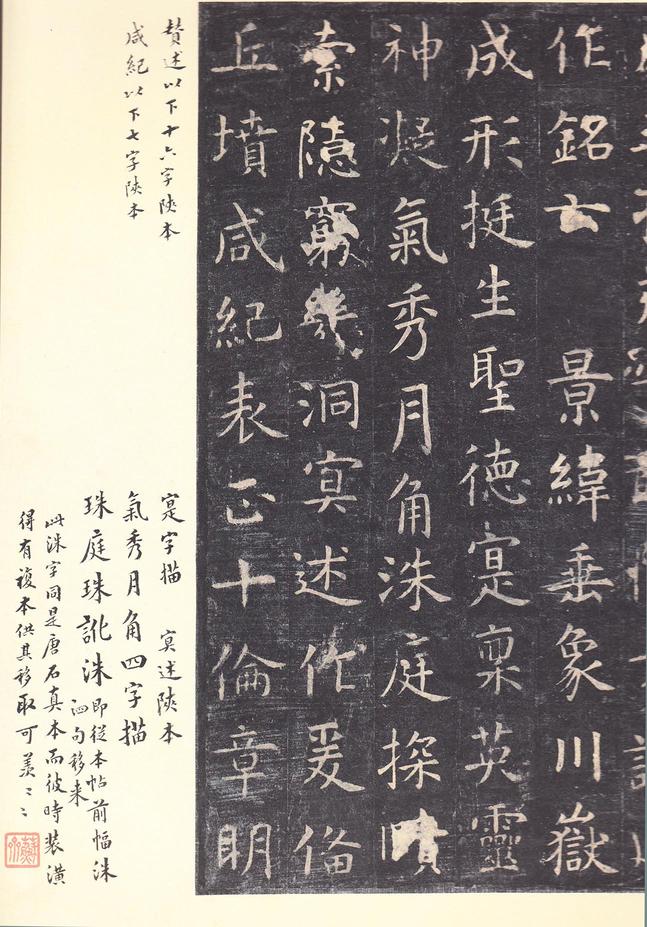 作銘云 景緯垂象川嶽
成形挺生聖徳寔稟英靈
神凝氣秀月角洙庭探賾
索隱窮幾洞冥述作爰俻
丘墳咸紀表正十倫章眀
贊述以下十六字陝本
咸紀以下七字陝本
寔字描 冥述陝本
氣秀月角四字描
珠庭珠訛洙 即從本帖前幅洙
泗句移来
此洙字同是唐石真本而彼時装潢
得有複本供其移取可羨〻〻